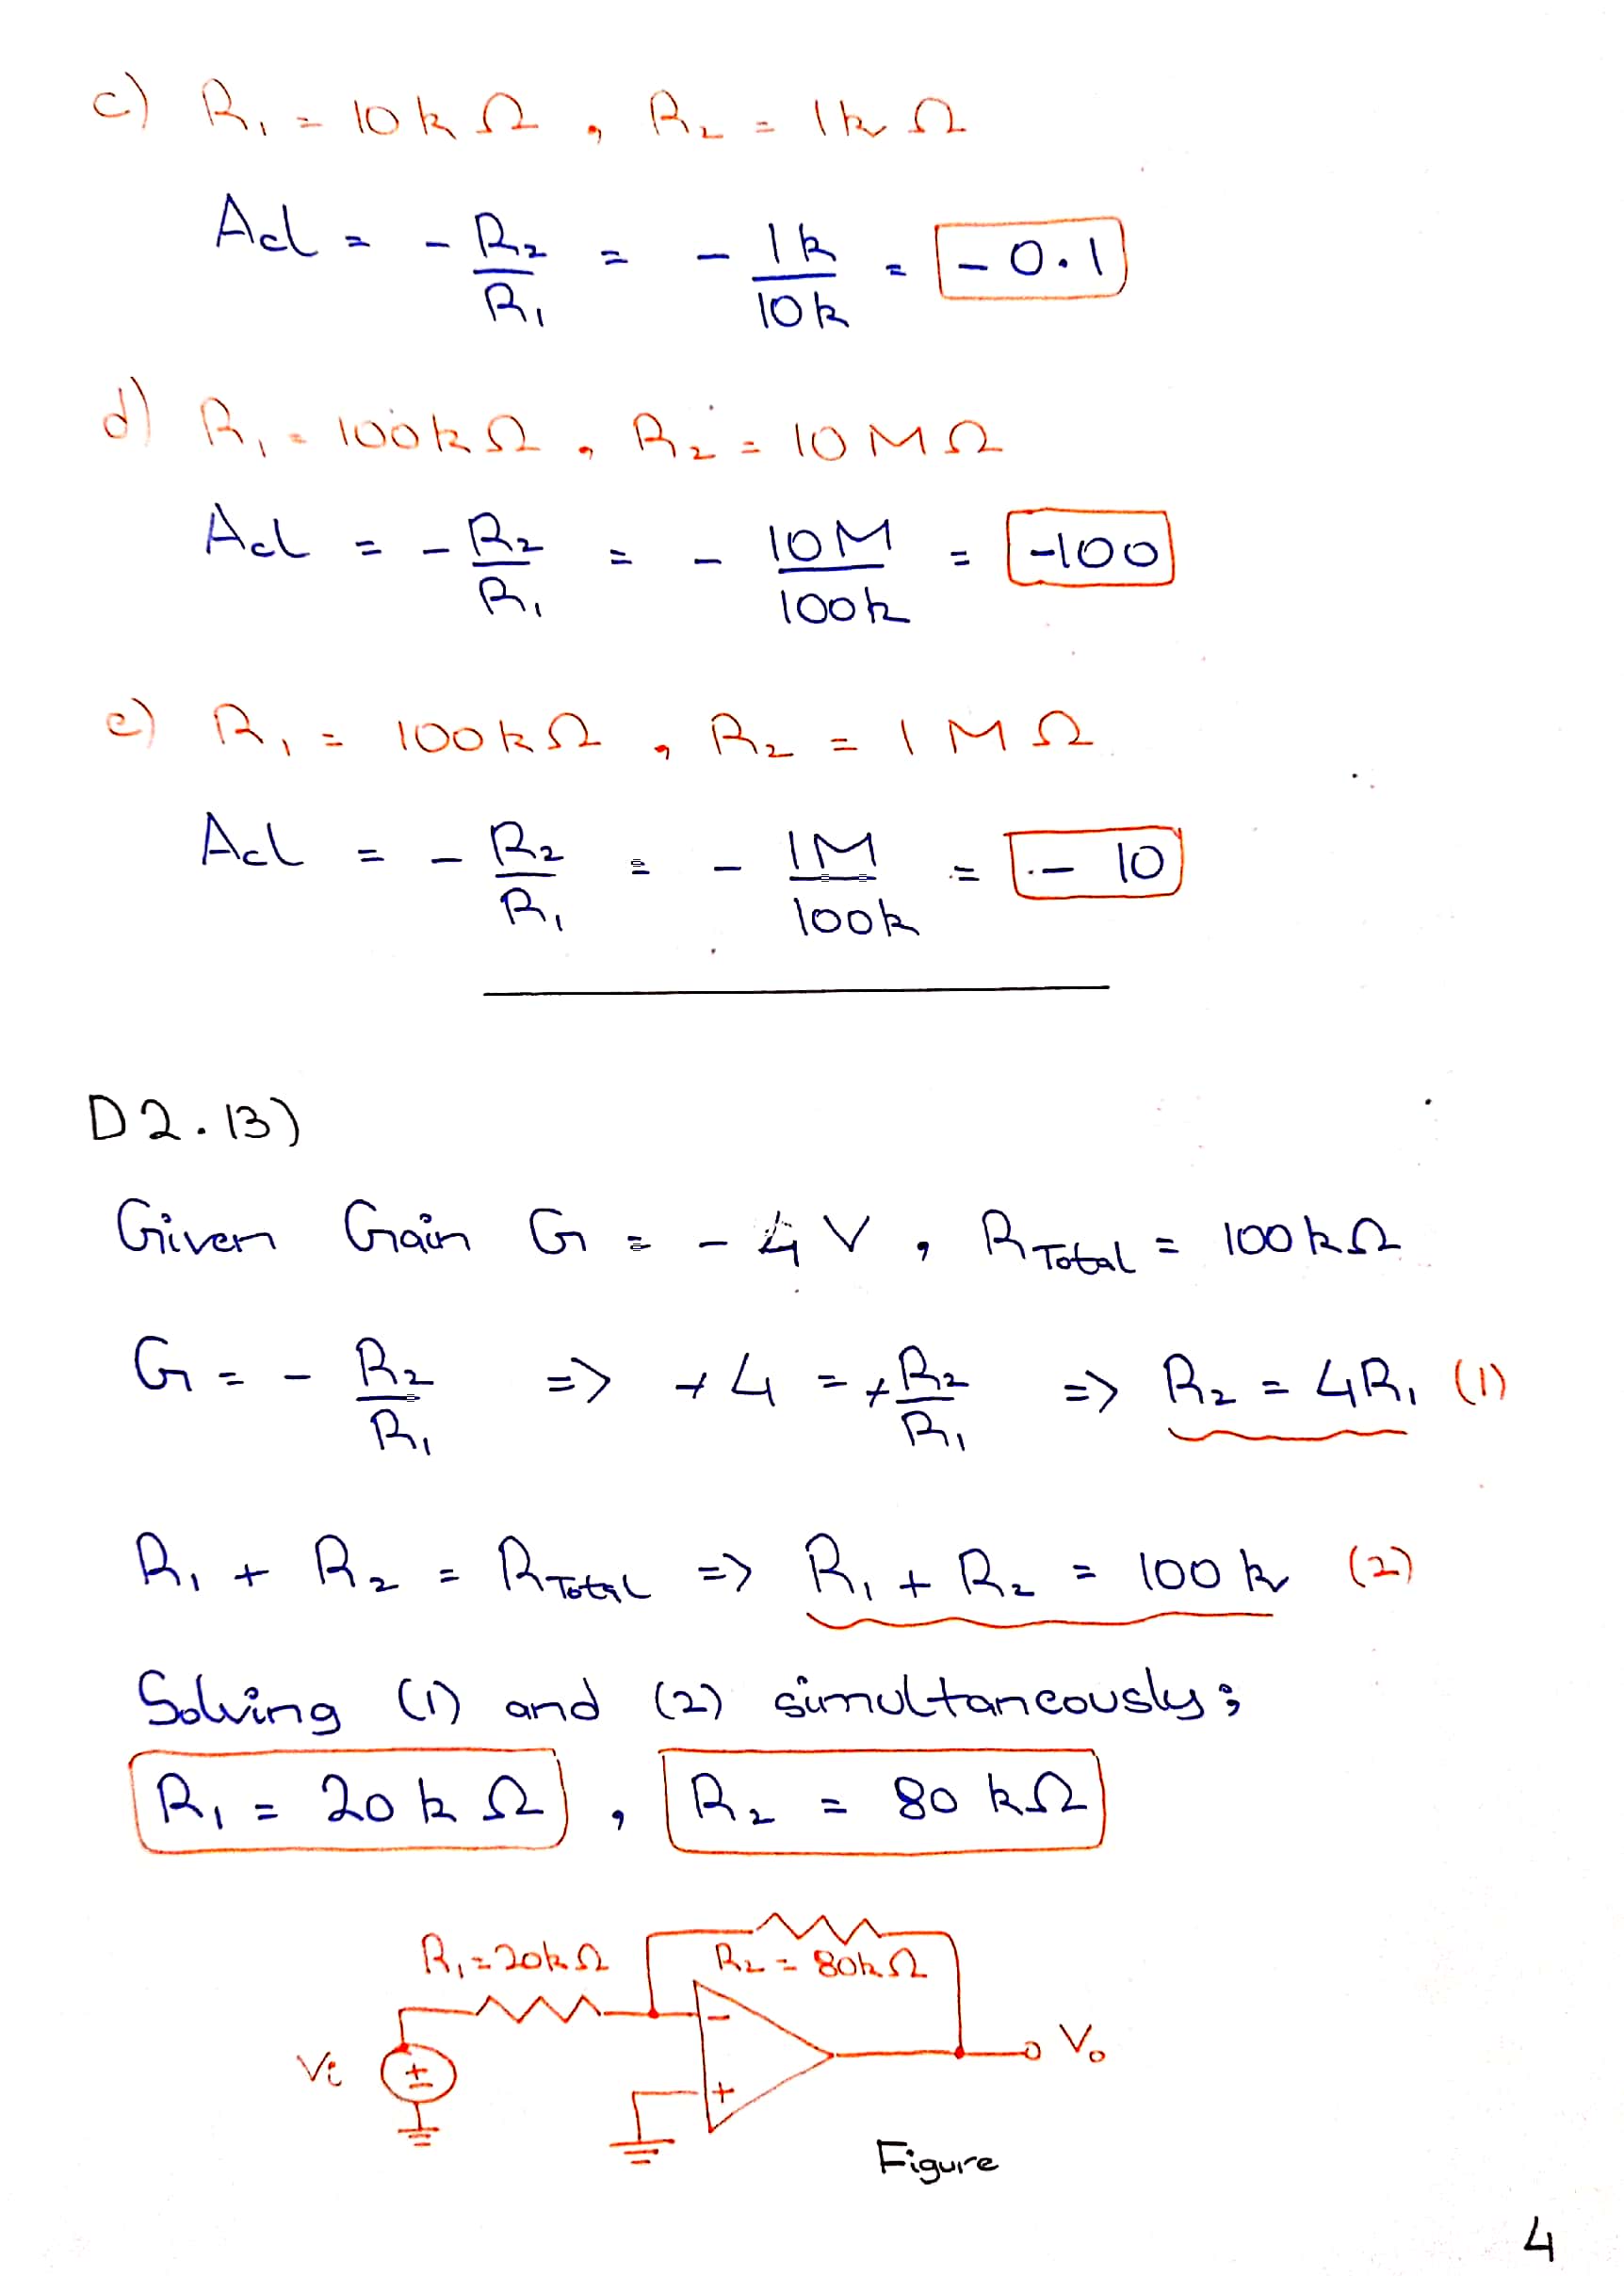 c) R₁ = 10kΩ, R₂ = 1kΩ
Acl = - R₂/R₁ = - 1k/10k = -0.1
d) R₁ = 100kΩ, R₂ = 10MΩ
Acl = - R₂/R₁ = - 10M/100k = -100
e) R₁ = 100kΩ, R₂ = 1MΩ
Acl = - R₂/R₁ = - 1M/100k = - 10
D2.13)
Given Gain G = - 4 V, R_Total = 100kΩ
G = - R₂/R₁ => +4 = +R₂/R₁ => R₂ = 4R₁ (1)
R₁ + R₂ = R_Total => R₁ + R₂ = 100k (2)
Solving (1) and (2) simultaneously;
R₁ = 20kΩ, R₂ = 80kΩ
R₁ = 20kΩ R₂ = 80kΩ
-
Vi ± Vo
+
Figure
4